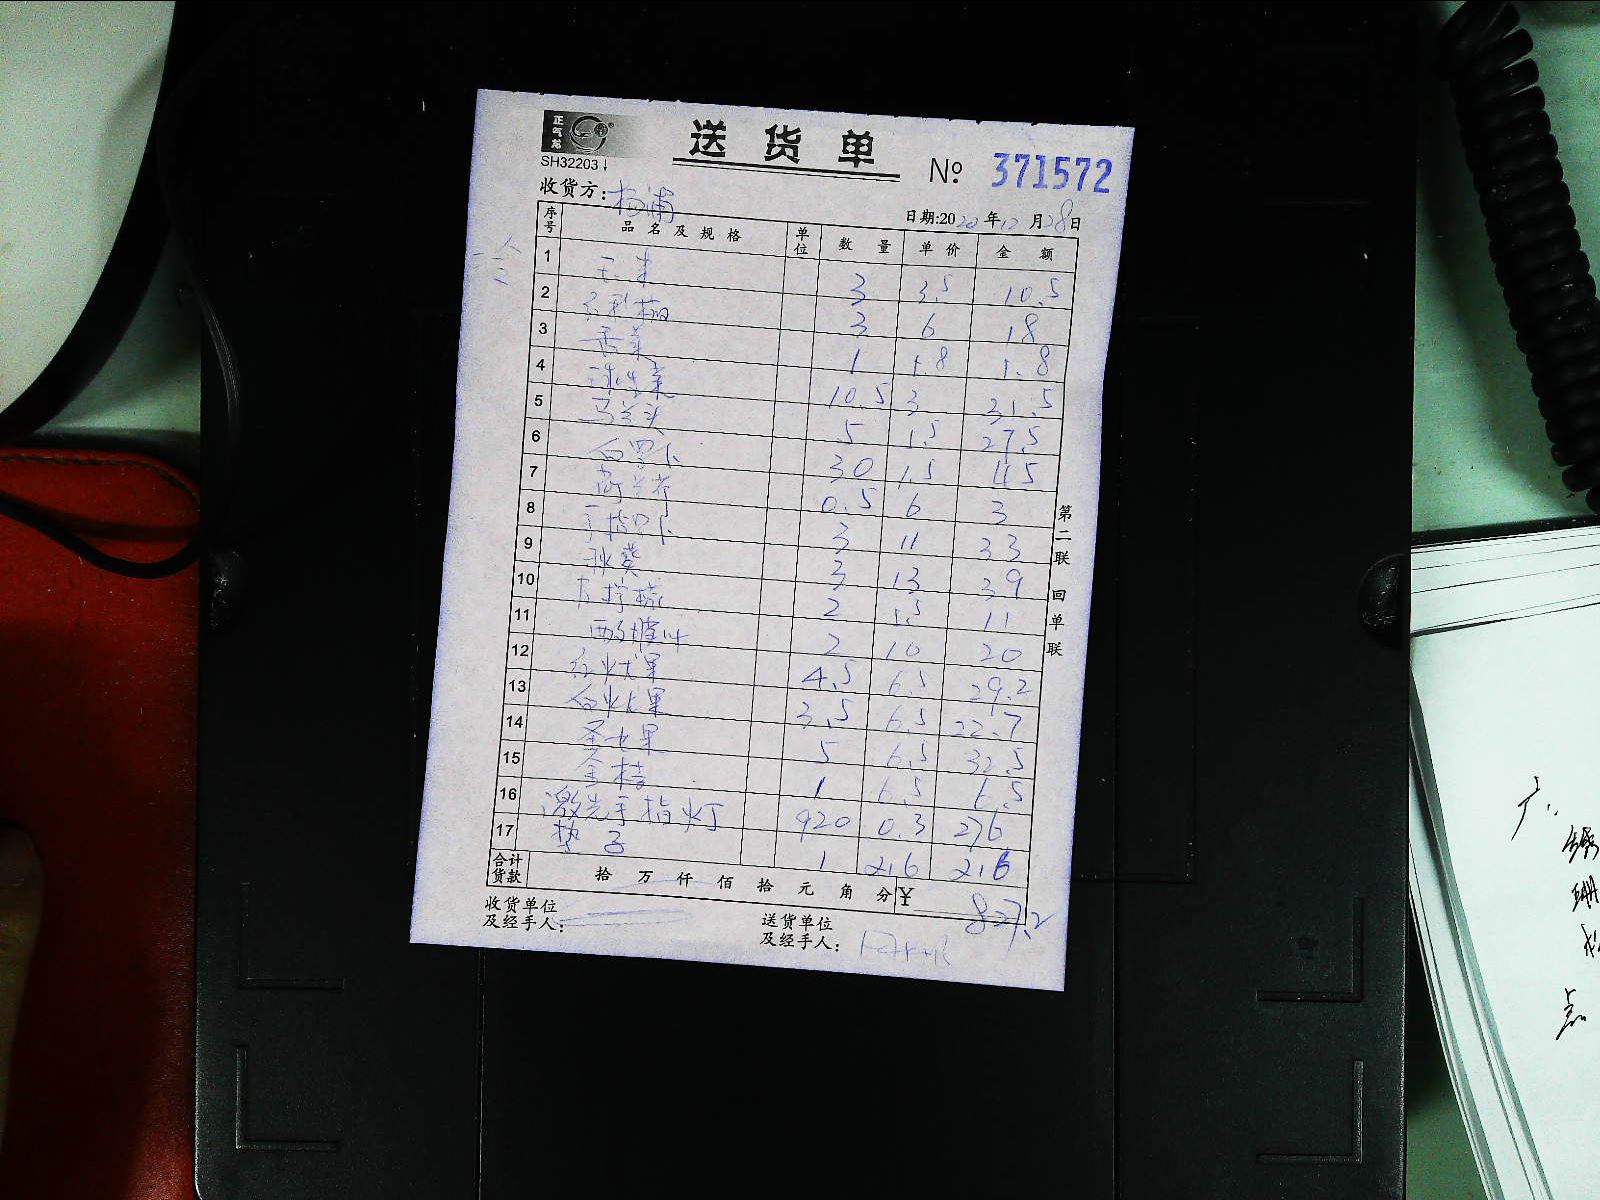 正气龙
送货单
SH32203↓
№ 371572
收货方：杨浦
日期:2020年12月28日
序号 品名及规格 单位 数量 单价 金额
1 3 3.5 10.5
2 3 6 18
3 1 1.8 1.8
4 球生菜 10.5 3 31.5
5 马兰头 5 5.5 27.5
6 白罗卜 30 1.5 45
7 荷兰芹 0.5 6 3
8 手指罗卜 3 11 33
9 秋葵 3 13 39
10 柠檬 2 5.5 11
11 2 10 20
12 红火龙果 4.5 6.5 29.2
13 白火龙果 3.5 6.5 22.7
14 圣女果 5 6.5 32.5
15 金桔 1 6.5 6.5
16 激光手指灯 920 0.3 276
17 垫子 1 216 216
合计货款 拾 万 仟 佰 拾 元 角 分 ¥ 827.2
收货单位及经手人：
送货单位及经手人：
第二联 回单联